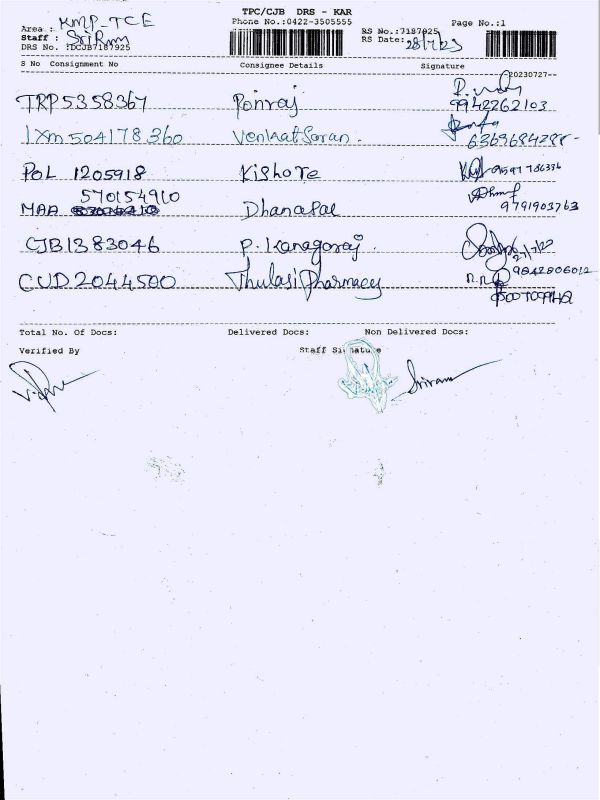 TPC/CJB DRS - KAR
Area : KMP-TCE Phone No.:0422-3505555 Page No.:1
Staff : SriRam RS No.:7187925
DRS No. :DCJB7187925 RS Date: 28/7/23
S No Consignment No Consignee Details Signature
20230727--
TRP5358367 Ponraj 9942262103
IXM504178360 Venkat Saran. 6363684288-
POL 1205918 Kishore
570154910
MAA Dhanapal 9791903763
CJB1383046 P. Kanagaraj. 27/7/23
CUD2044500 Thulasi Pharmacy 9842806012
Total No. Of Docs: Delivered Docs: Non Delivered Docs:
Verified By Staff Signature
Sriram